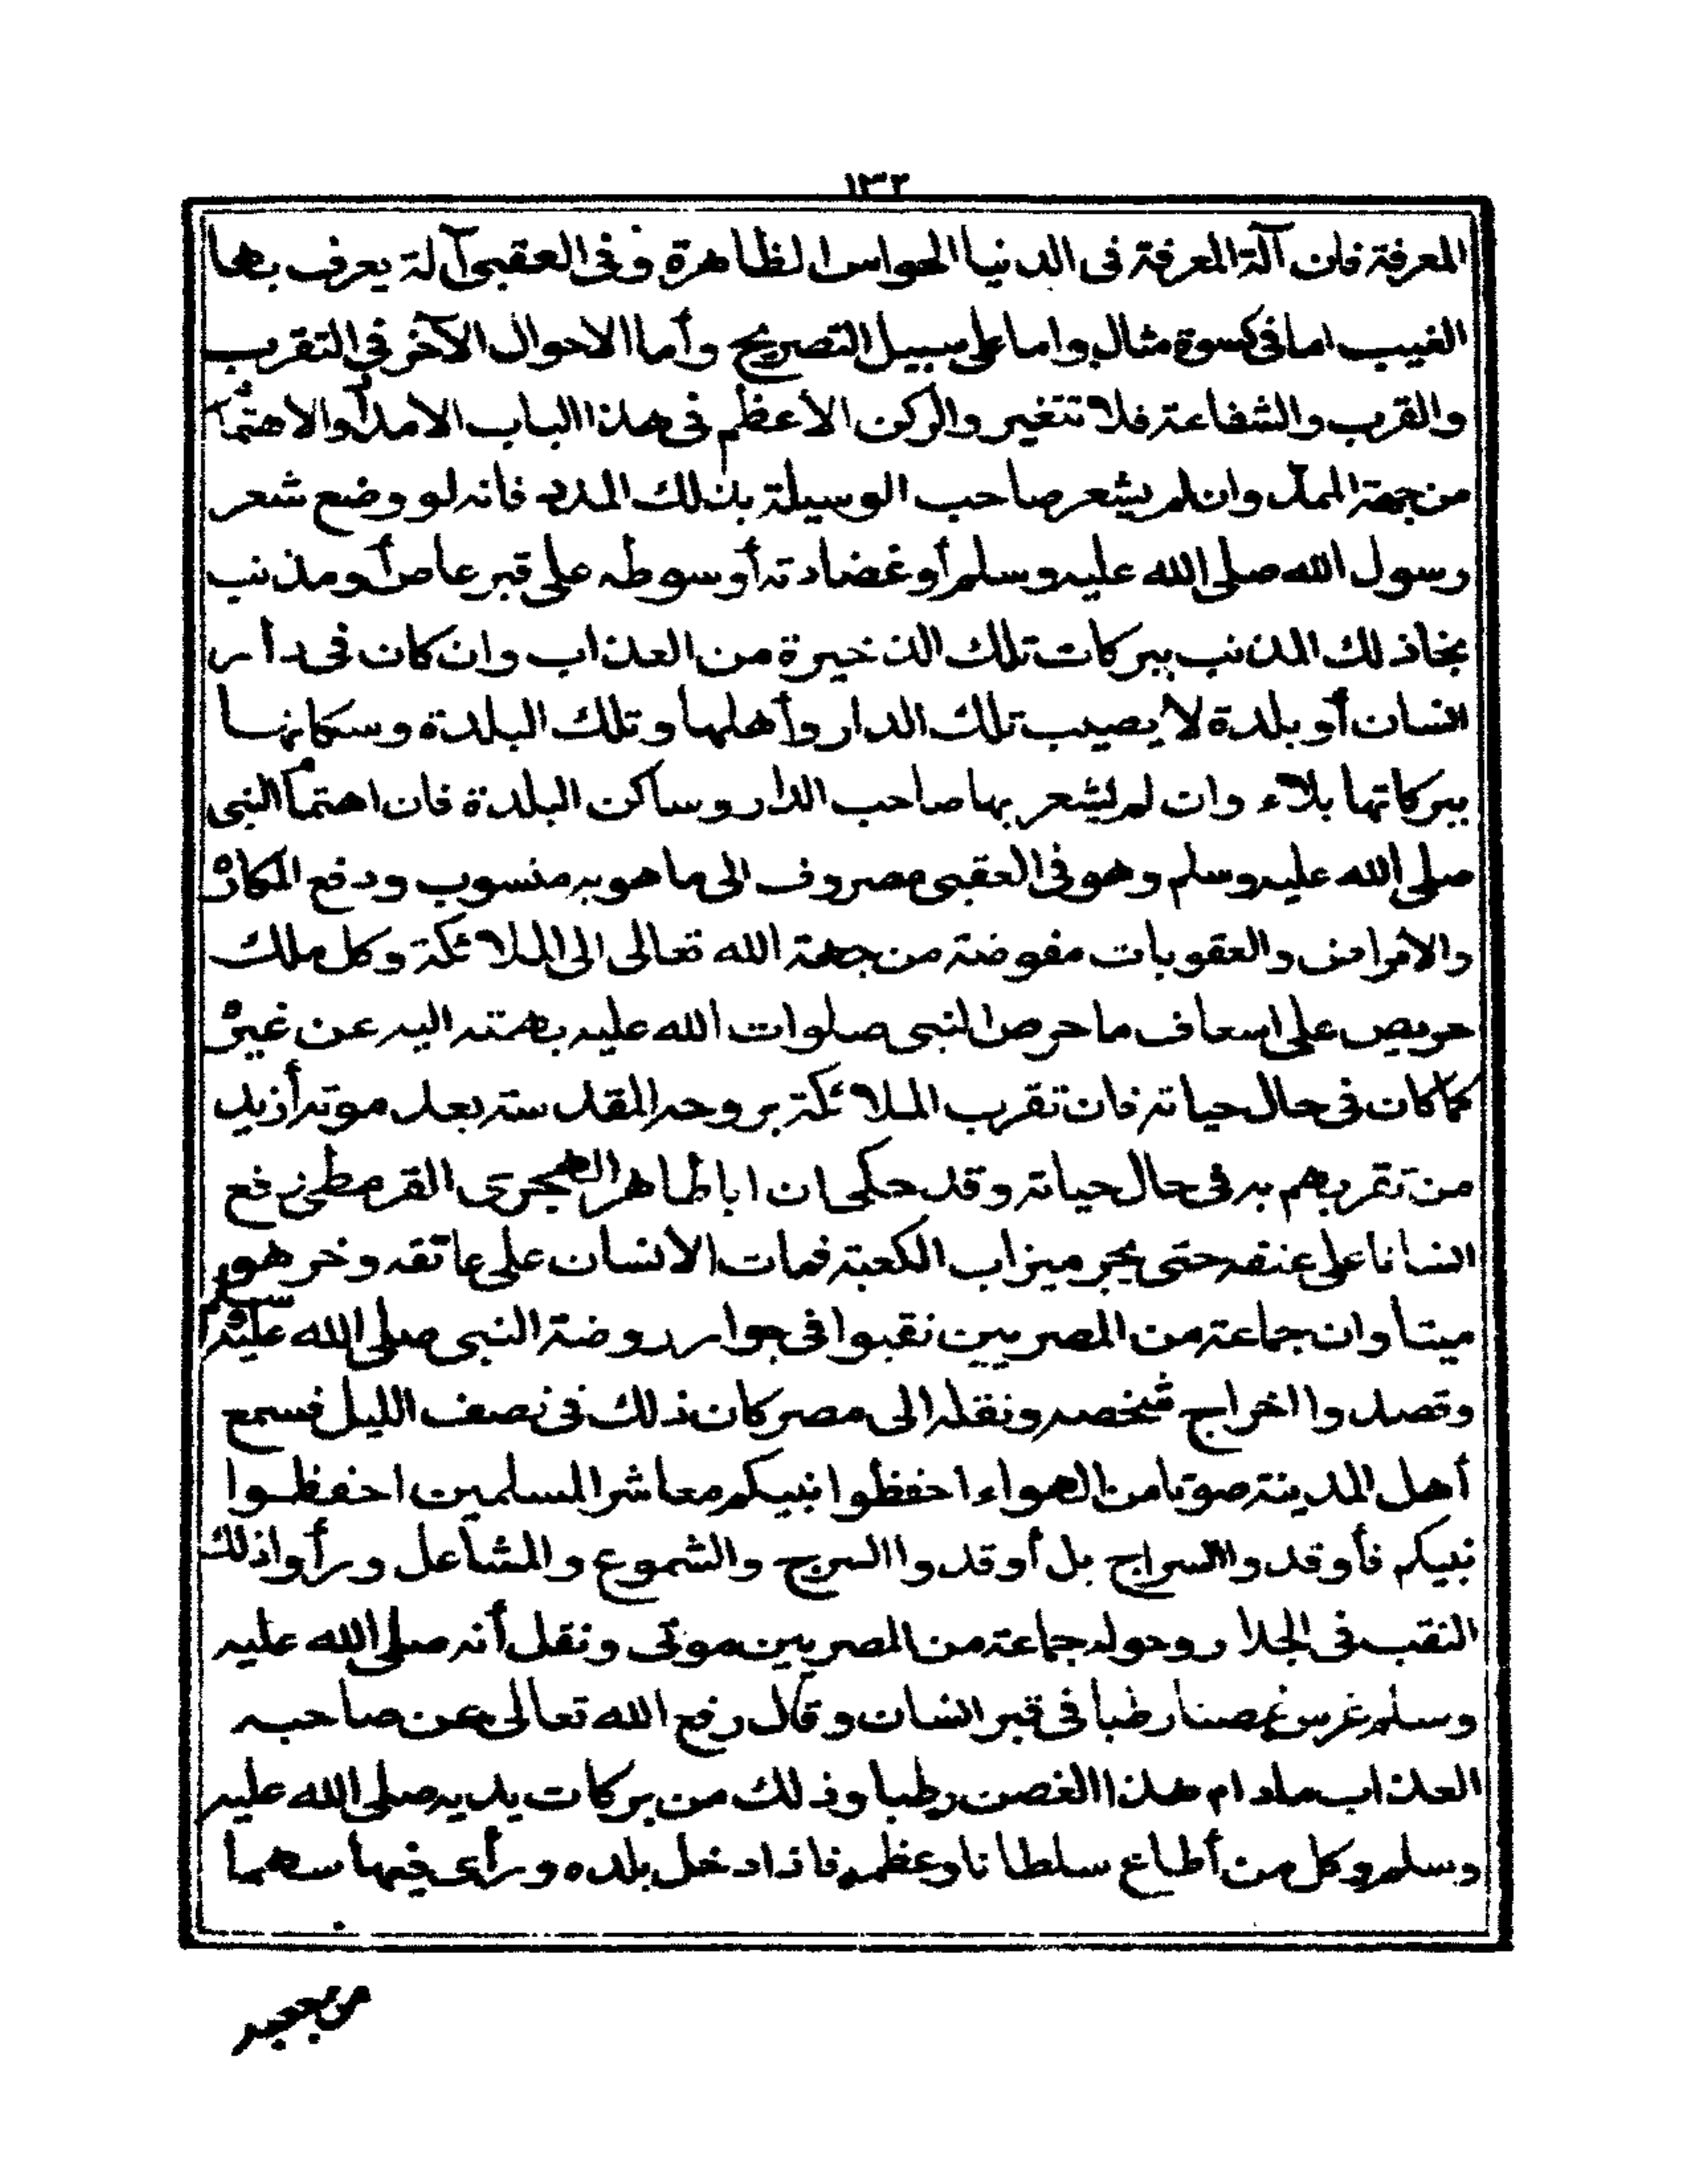 ١٣٢
المعرفة فان آلة المعرفة فى الدنيا الحواس الظاهرة وفى العقبى آلة يعرف بها
الغيب اما فى كسوة مثال واما على سبيل التصريح وأما الاحوال الآخر فى التقرب
والقرب والشفاعة فلا تتغير والركن الأعظم فى هذا الباب الامداد والاهتمام
من جهة الممد وان لم يشعر صاحب الوسيلة بذلك المدد فانه لو وضع شعر
رسول الله صلى الله عليه وسلم أو غضادته أو سوطه على قبر عاص أو مذنب
نجا ذلك المذنب ببركات تلك الذخيرة من العذاب وان كان فى دار
انسان أو بلدة لا يصيب تلك الدار وأهلها وتلك البلدة وسكانها
ببركاتها بلاء وان لم يشعر بها صاحب الدار وساكن البلدة فان اهتمام النبى
صلى الله عليه وسلم وهو فى العقبى مصروف الى ما هو به منسوب ودفع المكاره
والامراض والعقوبات مفوضة من جهة الله تعالى الى الملائكة وكل ملك
حريص على اسعاف ما حرص النبى صلوات الله عليه بهمته اليه عن غيره
كما كان فى حال حياته فان تقرب الملائكة بروحه المقدسته بعد موته أزيد
من تقربهم به فى حال حياته وقد حكى ان اباطاهر الهجرى القرمطى رفع
انسانا على عنقه حتى يجر ميزاب الكعبة فمات الأنسان على عاتقه وخر هو
ميتا وان جماعة من المصريين نقبوا فى جوار روضة النبى صلى الله عليه وسلم
وقصدوا اخراج شخصه ونقله الى مصر كان ذلك فى نصف الليل فسمع
أهل المدينة صوتا من الهواء احفظوا نبيكم معاشر المسلمين احفظوا
نبيكم فأوقدوا السراج بل أوقدوا السرج والشموع والمشاعل ورأوا ذلك
النقب فى الجدار وحوله جماعة من المصريين موتى ونقل أنه صلى الله عليه
وسلم غرس غصنا رطبا فى قبر انسان وقال رفع الله تعالى عن صاحبه
العذاب مادام هذا الغصن رطبا وذلك من بركات يديه صلى الله عليه
وسلم وكل من أطاع سلطانا وعظمه فاذا دخل بلده ورأى فيها سهما
من جعبه